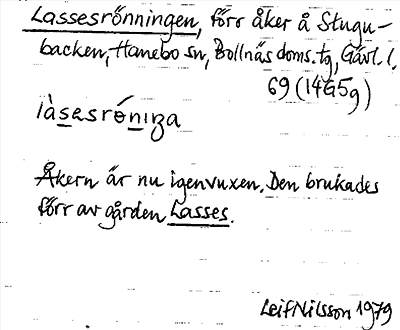 Lassesrönningen, förr åker å Stugu-
backen, Hanebo sn, Bollnäs doms. tg, Gävl. l.
69 (14G5g)
làsesróniŋa
Åkern är nu igenvuxen. Den brukades
förr av gården Lasses.
Leif Nilsson 1979